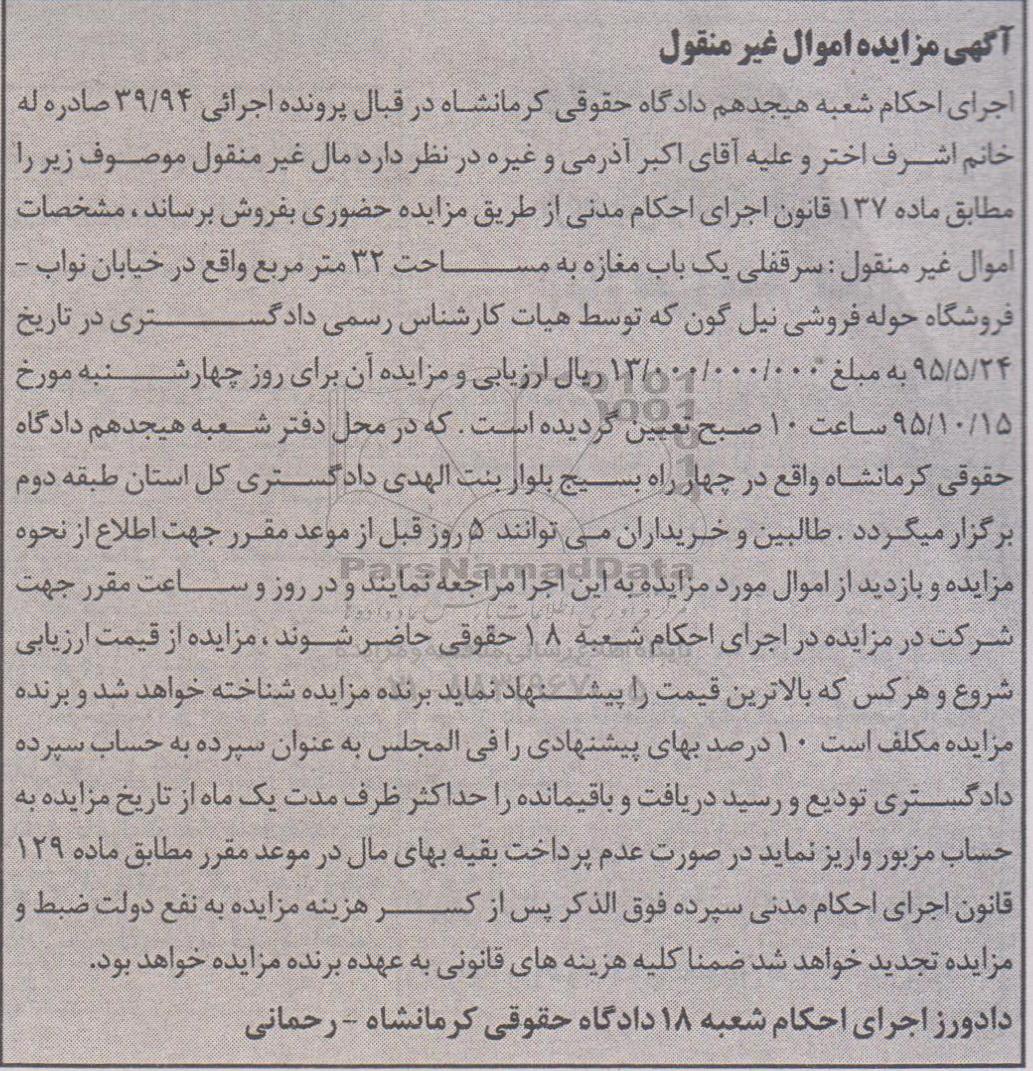 آگهی مزایده اموال غیر منقول
اجرای احکام شعبه هیجدهم دادگاه حقوقی کرمانشاه در قبال پرونده اجرائی ۳۹/۹۴ صادره له
خانم اشرف اختر و علیه آقای اکبر آذرمی و غیره در نظر دارد مال غیر منقول موصوف زیر را
مطابق ماده ۱۳۷ قانون اجرای احکام مدنی از طریق مزایده حضوری بفروش برساند ، مشخصات
اموال غیر منقول : سرقفلی یک باب مغازه به مساحت ۳۲ متر مربع واقع در خیابان نواب -
فروشگاه حوله فروشی نیل گون که توسط هیات کارشناس رسمی دادگستری در تاریخ
۹۵/۵/۲۴ به مبلغ ۱۳/۰۰۰/۰۰۰/۰۰۰ ریال ارزیابی و مزایده آن برای روز چهارشنبه مورخ
۹۵/۱۰/۱۵ ساعت ۱۰ صبح تعیین گردیده است . که در محل دفتر شعبه هیجدهم دادگاه
حقوقی کرمانشاه واقع در چهار راه بسیج بلوار بنت الهدی دادگستری کل استان طبقه دوم
برگزار میگردد . طالبین و خریداران می توانند ۵ روز قبل از موعد مقرر جهت اطلاع از نحوه
مزایده و بازدید از اموال مورد مزایده به این اجرا مراجعه نمایند و در روز و ساعت مقرر جهت
شرکت در مزایده در اجرای احکام شعبه ۱۸ حقوقی حاضر شوند ، مزایده از قیمت ارزیابی
شروع و هر کس که بالاترین قیمت را پیشنهاد نماید برنده مزایده شناخته خواهد شد و برنده
مزایده مکلف است ۱۰ درصد بهای پیشنهادی را فی المجلس به عنوان سپرده به حساب سپرده
دادگستری تودیع و رسید دریافت و باقیمانده را حداکثر ظرف مدت یک ماه از تاریخ مزایده به
حساب مزبور واریز نماید در صورت عدم پرداخت بقیه بهای مال در موعد مقرر مطابق ماده ۱۲۹
قانون اجرای احکام مدنی سپرده فوق الذکر پس از کسر هزینه مزایده به نفع دولت ضبط و
مزایده تجدید خواهد شد ضمنا کلیه هزینه های قانونی به عهده برنده مزایده خواهد بود.
دادورز اجرای احکام شعبه ۱۸ دادگاه حقوقی کرمانشاه - رحمانی
ParsNamadData